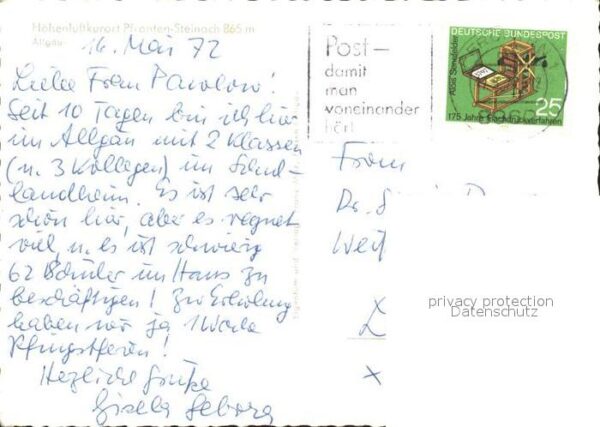 Höhenluftkurort Pfronten-Steinach 865 m
Allgäu
16. Mai 72
Liebe Frau Pawlow!
Seit 10 Tagen bin ich hier
im Allgäu mit 2 Klassen
(u. 3 Kollegen) im Schul-
landheim. Es ist sehr
schön hier, aber es regnet
viel, u. es ist schwierig
62 Schüler im Haus zu
beschäftigen! Zur Erholung
haben wir ja 1 Woche
Pfingstferien!
Herzliche Grüße
Gisela
Post-
damit
man
voneinander
hört
DEUTSCHE BUNDESPOST
Alois Senefelder
25
175 Jahre Flachdruckverfahren
Frau
Dr.
privacy protection
Datenschutz